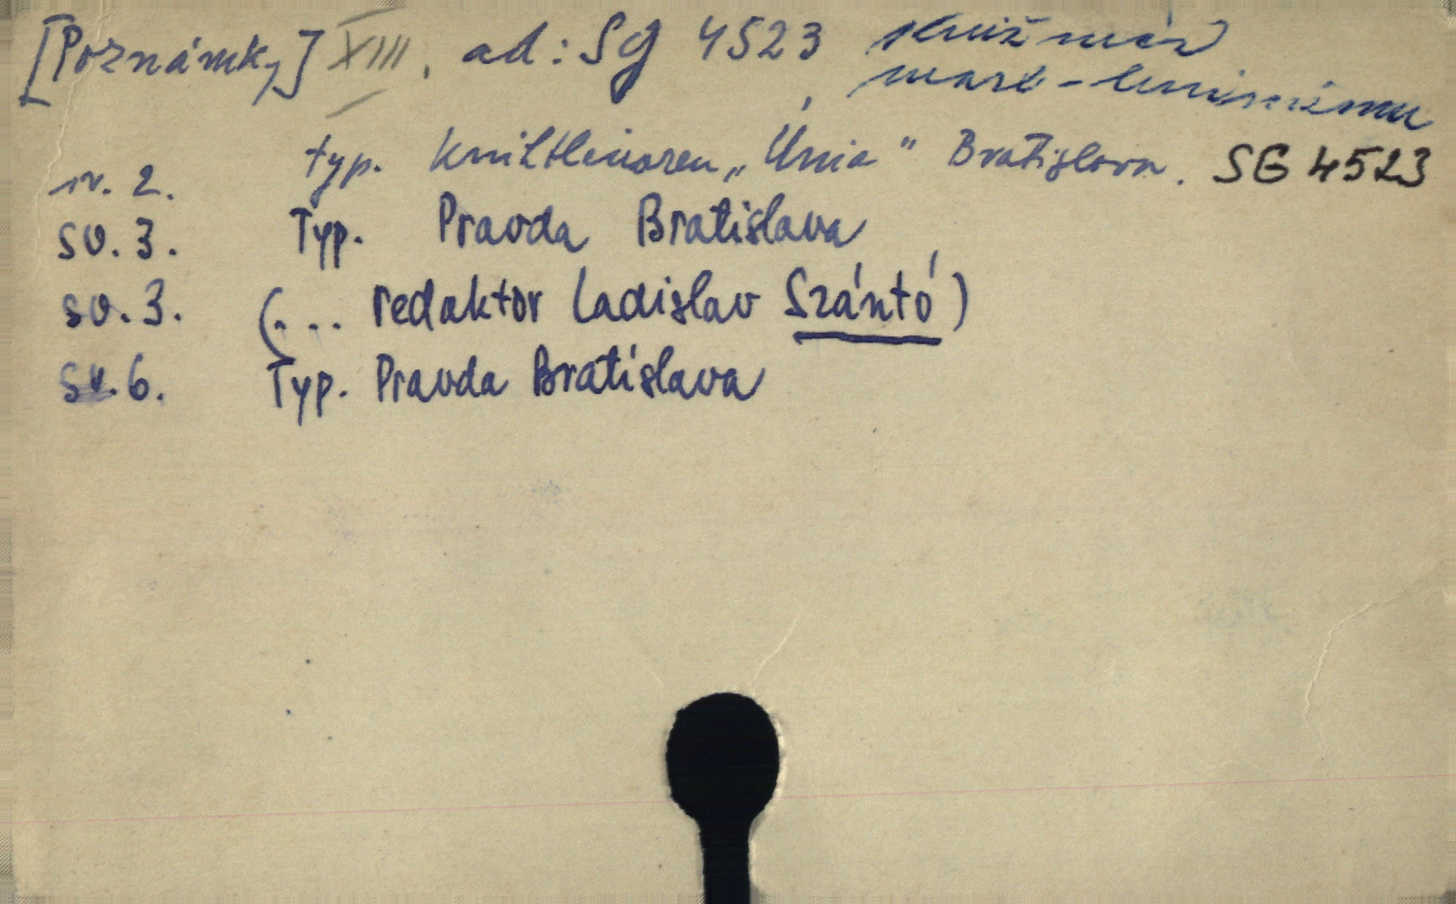 [Poznámky] XIII. ad: SG 4523 Knižnica
marx-leninizmu
sv. 2. typ. kníhtlačiareň „Únia" Bratislava. SG 4523
sv. 3. Typ. Pravda Bratislava
sv. 3. (... redaktor Ladislav Szántó)
sv. 6. Typ. Pravda Bratislava